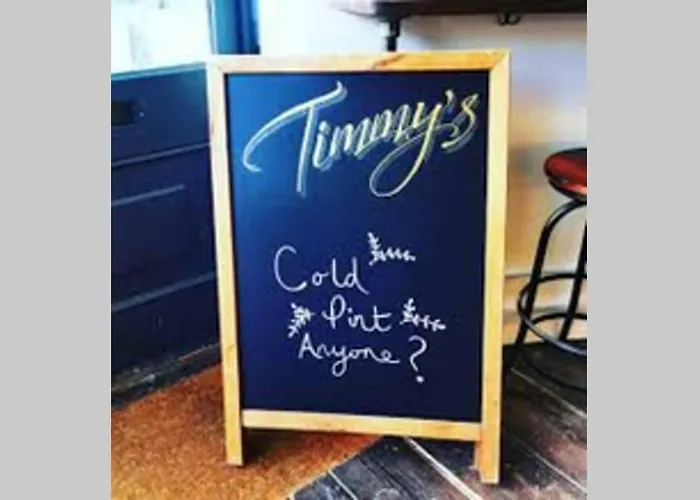 Timmy's
Cold
Pint
Anyone?